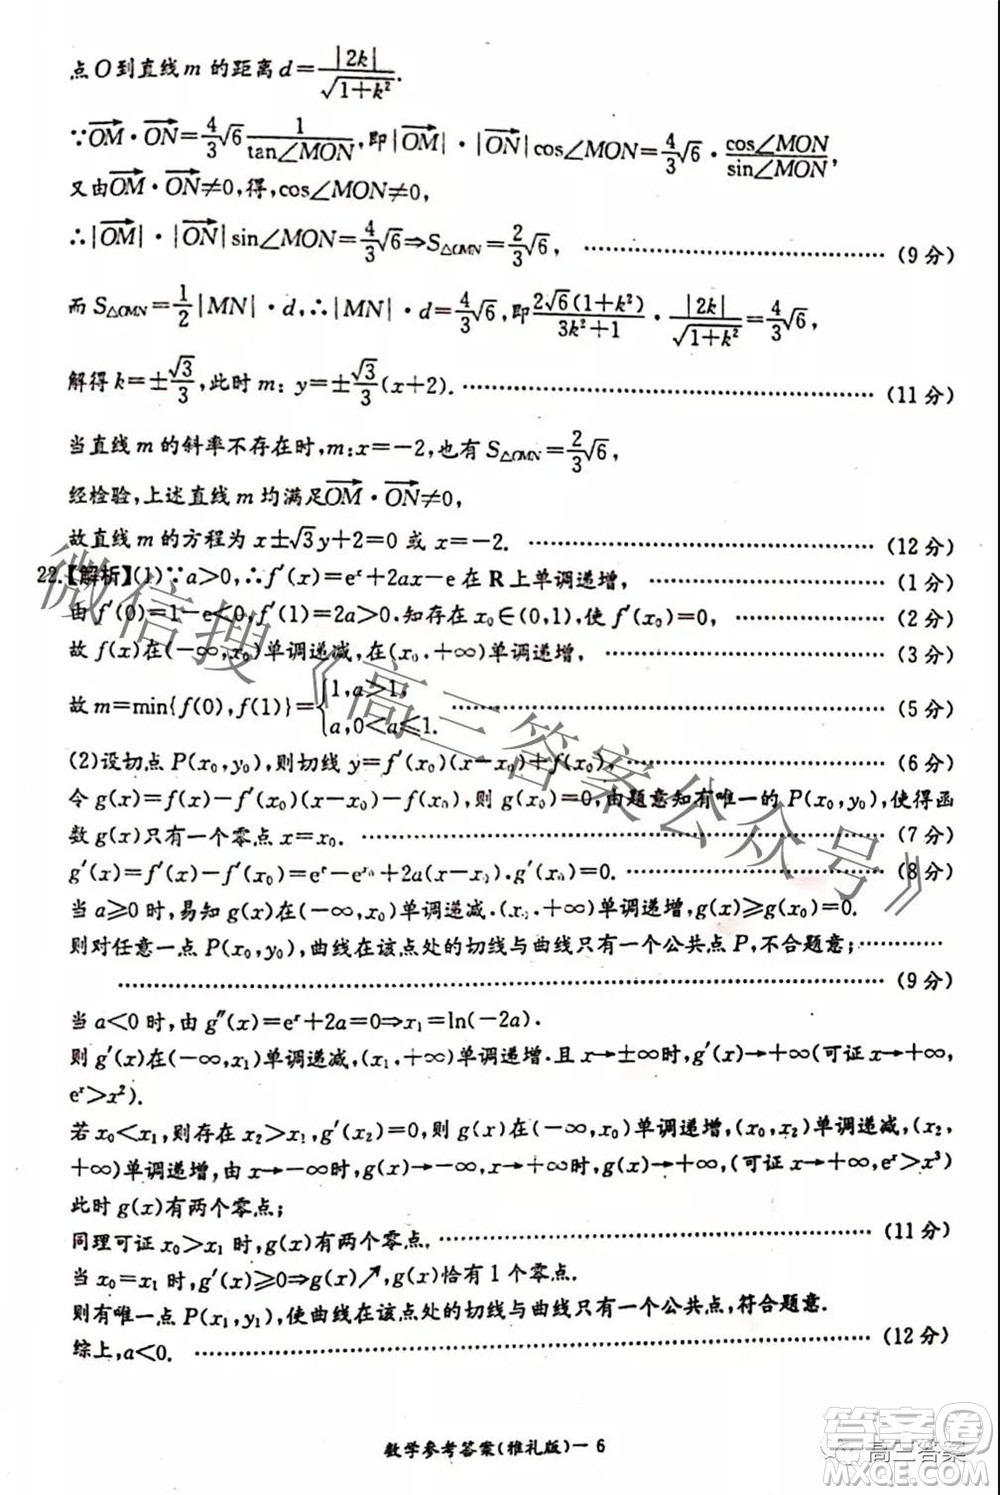 点O到直线m的距离d=|2k|/√(1+k²).
∵OM·ON=4/3√6 1/tan∠MON,即|OM|·|ON|cos∠MON=4/3√6·cos∠MON/sin∠MON,
又由OM·ON≠0,得,cos∠MON≠0,
∴|OM|·|ON|sin∠MON=4/3√6⇒S△OMN=2/3√6, ……………(9分)
而S△OMN=1/2|MN|·d,∴|MN|·d=4/3√6,即2√6(1+k²)/(3k²+1)·|2k|/√(1+k²)=4/3√6,
解得k=±√3/3,此时m:y=±√3/3(x+2). ……………(11分)
当直线m的斜率不存在时,m:x=-2,也有S△OMN=2/3√6,
经检验,上述直线m均满足OM·ON≠0,
故直线m的方程为x±√3y+2=0或x=-2. ……………(12分)
22.【解析】(1)∵a>0,∴f′(x)=eˣ+2ax-e在R上单调递增, ……………(1分)
由f′(0)=1-e<0,f′(1)=2a>0.知存在x₀∈(0,1),使f′(x₀)=0, ……………(2分)
故f(x)在(-∞,x₀)单调递减,在(x₀,+∞)单调递增, ……………(3分)
故m=min{f(0),f(1)}={1,a>1, a,0<a≤1. ……………(5分)
(2)设切点P(x₀,y₀),则切线y=f′(x₀)(x-x₀)+f(x₀), ……………(6分)
令g(x)=f(x)-f′(x₀)(x-x₀)-f(x₀),则g(x₀)=0,由题意知有唯一的P(x₀,y₀),使得函
数g(x)只有一个零点x=x₀. ……………(7分)
g′(x)=f′(x)-f′(x₀)=eˣ-eˣ⁰+2a(x-x₀).g′(x₀)=0. ……………(8分)
当a≥0时,易知g(x)在(-∞,x₀)单调递减,(x₀,+∞)单调递增,g(x)≥g(x₀)=0.
则对任意一点P(x₀,y₀),曲线在该点处的切线与曲线只有一个公共点P,不合题意;…………
……………(9分)
当a<0时,由g″(x)=eˣ+2a=0⇒x₁=ln(-2a).
则g′(x)在(-∞,x₁)单调递减,(x₁,+∞)单调递增.且x→±∞时,g′(x)→+∞(可证x→+∞,
eˣ>x²).
若x₀<x₁,则存在x₂>x₁,g′(x₂)=0,此时g(x)在(-∞,x₀)单调递增,(x₀,x₂)单调递减,(x₂,
+∞)单调递增,由x→-∞时,g(x)→-∞,x→+∞时,g(x)→+∞,(可证x→+∞,eˣ>x³)
此时g(x)有两个零点;
同理可证x₀>x₁时,g(x)有两个零点. ……………(11分)
当x₀=x₁时,g′(x)≥0⇒g(x)↗,g(x)恰有1个零点.
则有唯一点P(x₁,y₁),使曲线在该点处的切线与曲线只有一个公共点,符合题意.
综上,a<0. ……………(12分)
微信搜《高三答案公众号》
数学参考答案(雅礼版)-6
高三答案
答案圈
MXQE.COM